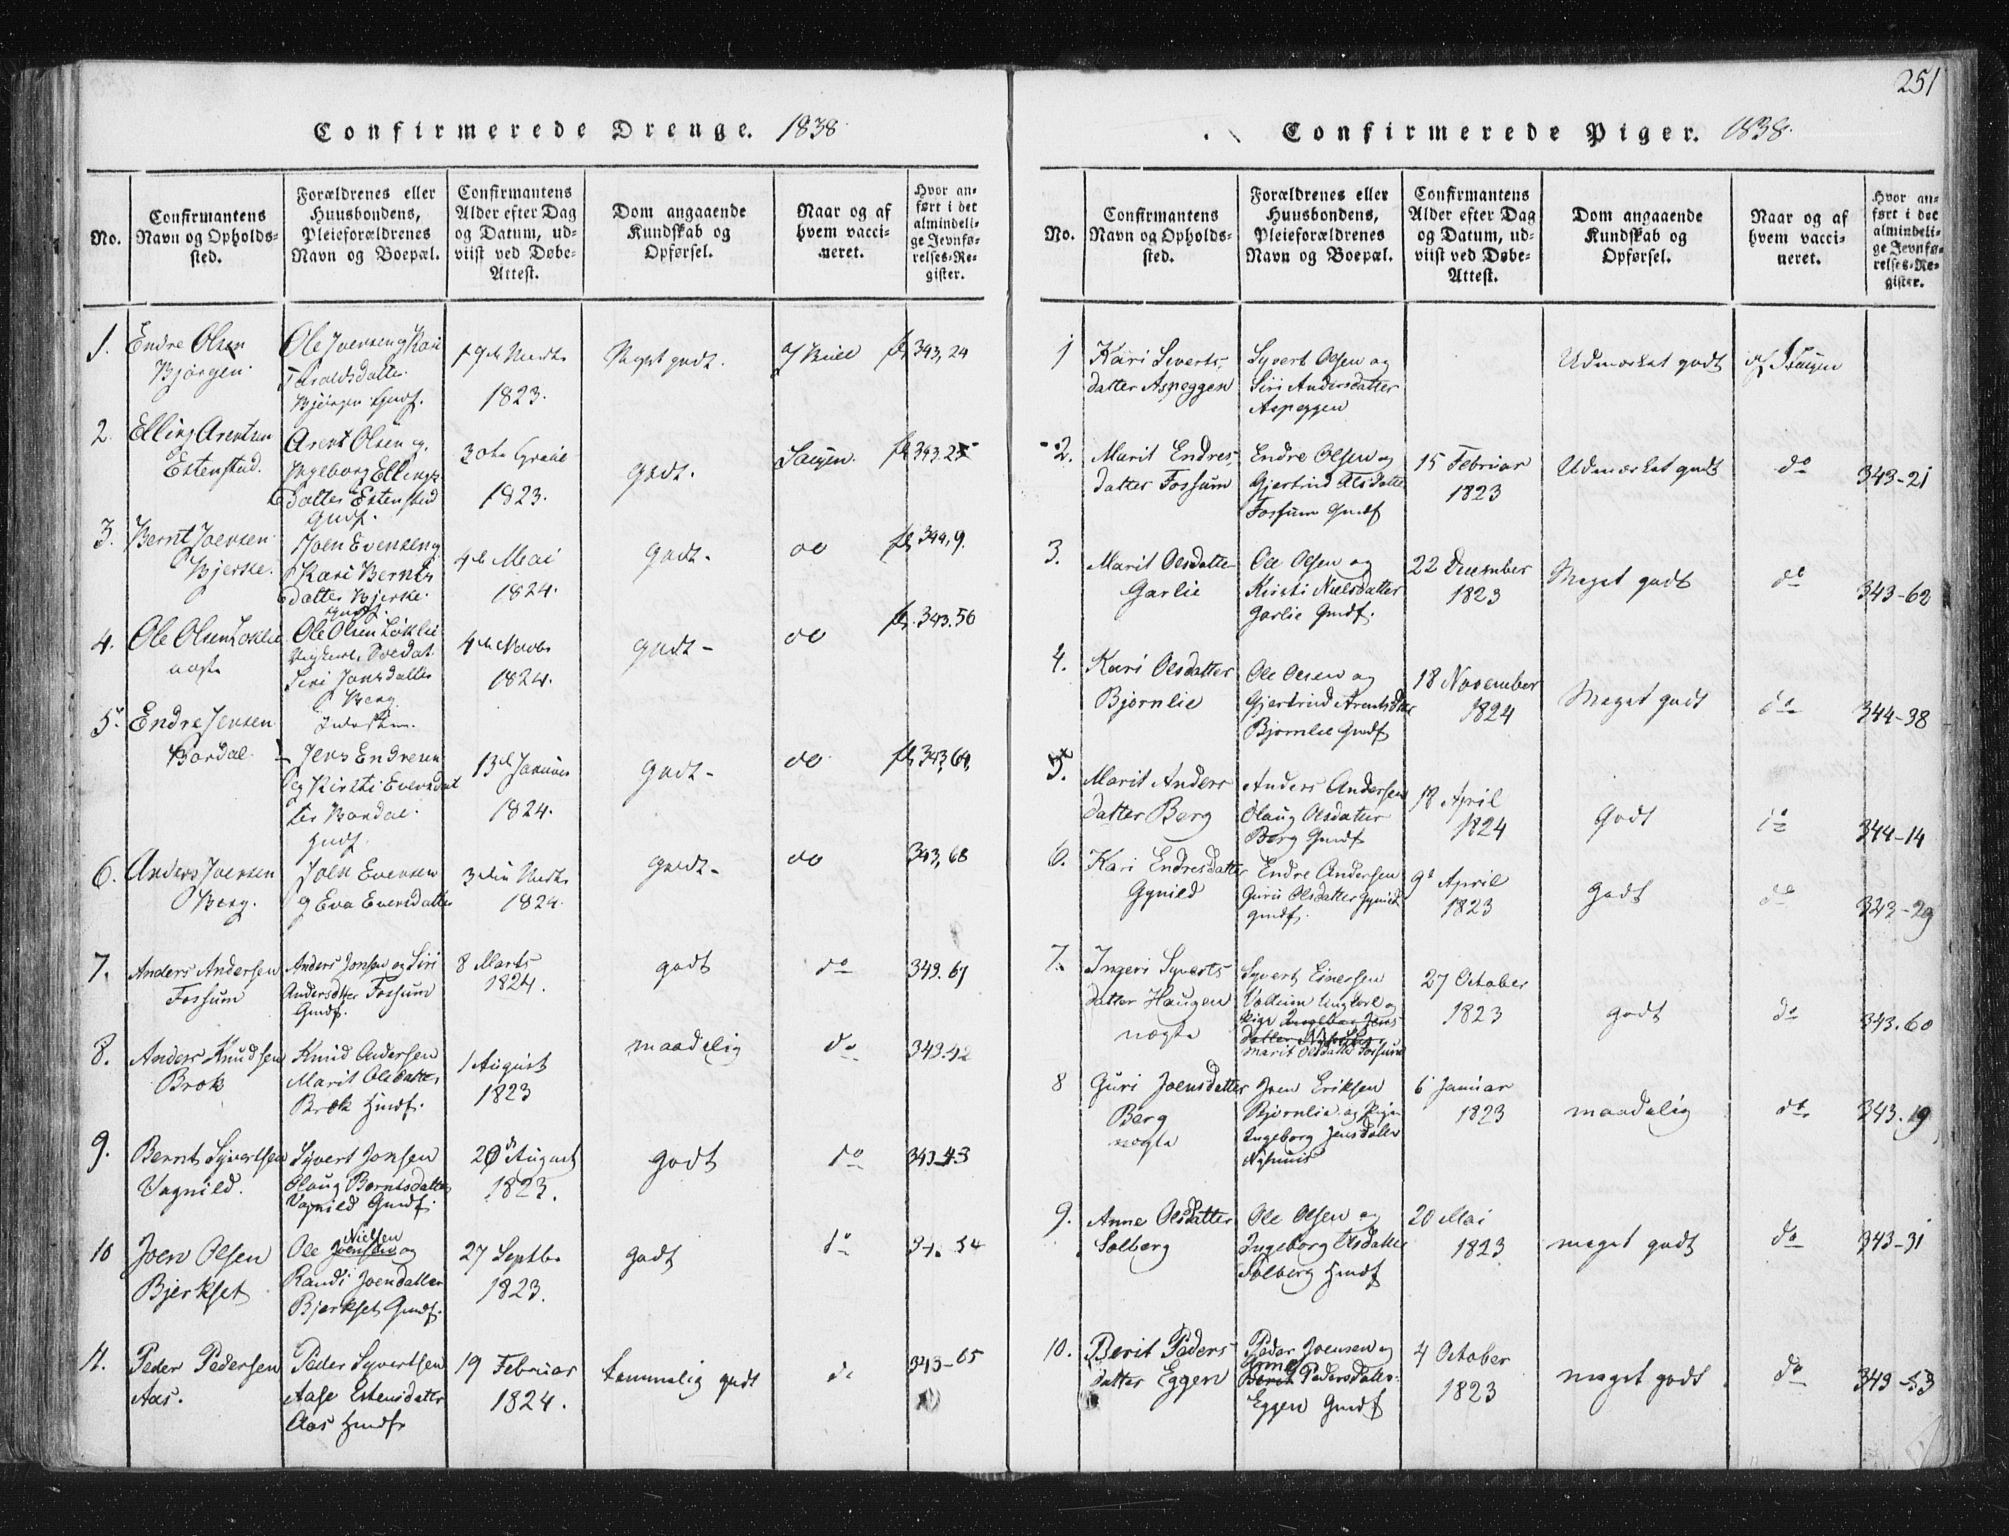 251
Confirmerede Drenge. 1838
No.
Confirmantens
Navn og Opholds-
sted.
Forældrenes eller
Huusbondens,
Pleieforældrenes
Navn og Boepæl.
Confirmantens
Alder efter Dag
og Datum, ud-
viist ved Døbe-
Attest.
Dom angaaende
Kundskab og
Opførsel.
Naar og af
hvem vacci-
neret.
Hvor an-
ført i det
almindeli-
ge Jevnfø-
relses-Re-
gister.
1.
Endre Olsen
Bjørgen.
Ole Joensen og Kari
Taraldsdatter
Bjørgen Gmdf.
1823.
Meget godt.
343,24
2.
Elling Arentsen
Estenstad.
Arent Olsen og
Ingeborg Ellings
Datter Estenstad
Gmdf.
1823.
Godt.
343.25
3.
Bernt Joensen
Bjerke.
Joen Evensen og
Kari Bernts
datter Bjerke.
Gmdf.
4de Mai
1824.
Godt.
do
344,9.
4.
Ole Olsen Løklie
uægte
Ole Olsen Løklie
Siri Jonsdatter
Berg
4de Novbr
1824.
Godt
do
343.56
5.
Endre Jensen
Bordal
Jens Endresen
og Kirsti Evensdat
ter Bordal.
Gmdf.
13de Januar
1824.
Godt
do
343,64,
6.
Anders Joensen
Berg.
Joen Evensen
og Eva Evensdatter
1824.
Godt
do
343,68
7.
Anders Andersen
Fossum
Anders Jonsen og Siri
Andersdtter Fossum
Gmdf.
8 Marts
1824.
godt
do
343.67
8.
Anders Knudsen
Brok
Knud Andersen
Marit Olsdatter
Brok Gmdf.
1 August
1823
maadelig
do
343.42
9.
Bernt Syvertsen
Vagnild.
Syvert Jonsen
Olaug Berntsdatter
Vagnild Gmdf.
20 August
1823.
godt
do
343-43
10
Joen Olsen
Bjerkset
Ole Nielsen og
Randi Joensdatter
Bjerkset Gmdf.
27 Septbr
1823.
godt
do
11.
Peder Pedersen
Aas.
Peder Syvertsen
Aase Estensdatter
Aas Gmdf.
19 Februar
1824.
temmelig godt
do
343-65
Confirmerede Piger. 1838.
No.
Confirmantens
Navn og Opholds-
sted.
Forældrenes eller
Huusbondens,
Pleieforældrenes
Navn og Boepæl.
Confirmantens
Alder efter Dag
og Datum, ud-
viist ved Døbe-
Attest.
Dom angaaende
Kundskab og
Opførsel.
Naar og af
hvem vacci-
neret.
Hvor an-
ført i det
almindeli-
ge Jevnfø-
relses-Re-
gister.
1
Kari Siverts-
datter Aspeggen
Syvert Olsen og
Siri Andersdatter
Aspeggen
Udmærket godt
2.
Marit Endres-
datter Fossum
Endre Olsen og
Gjertrud Olsdatter
Fossum Gmdf
15 Februar
1823
Udmærket godt
do
343-21
3.
Marit Olsdatter
Garlie
Ole Olsen og
Kirsti Nielsdatter
Garlie Gmdf.
22 December
1823
Meget godt
do
343-62
4.
Kari Olsdatter
Bjørnlie
Ole Olsen og
Gjertrud Arentsdtter
Bjørnlie Gmdf
18 November
1824
Meget godt
do
344-38
5.
Marit Anders
datter Berg
Anders Andersen
Olaug Olsdatter
Berg Gmdf
18 April
1824
Godt
do
344-14
6.
Kari Endresdatter
Gynild
Endre Andersen
Guru Olsdatter Gynild
Gmdf.
9de April
1823
Godt
do
343-29
7.
Ingeri Syverts
datter Haugen
uægte
Syvert Einersen
Voltum Ungkarl og
Pige
Marit Olsdatter Fossum
27 October
1823
Godt
do
343.60
8
Guri Joensdatter
Berg
uægte
Joen Eriksen
Bjørnlie og Pigen
Ingeborg Jensdatter
6 Januar
1823
maadelig
do
343.19
9.
Anne Olsdatter
Solberg
Ole Olsen og
Ingeborg Olsdatter
Solberg Gmdf
20 Mai
1823
meget godt
do
343-31
10.
Berit Peders
datter Eggen
Peder Joensen og
Anne Pedersdatter
Eggen Gmdf
4 October
1823
meget godt
do
343-53